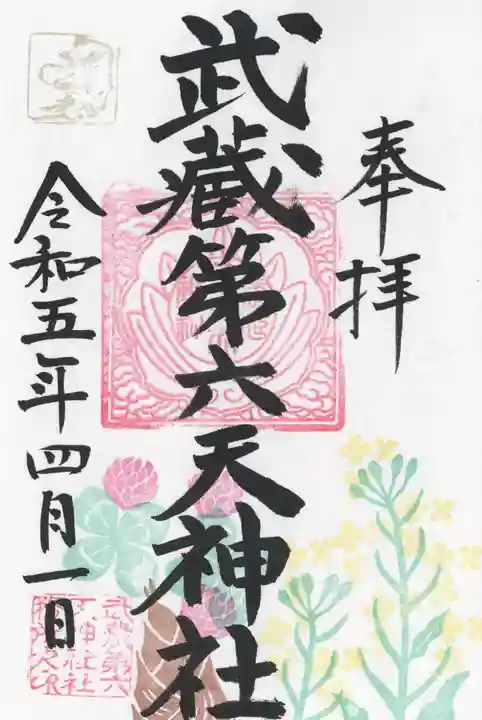 奉拝
武蔵第六天神社
令和五年四月一日
武蔵第六
天神社社